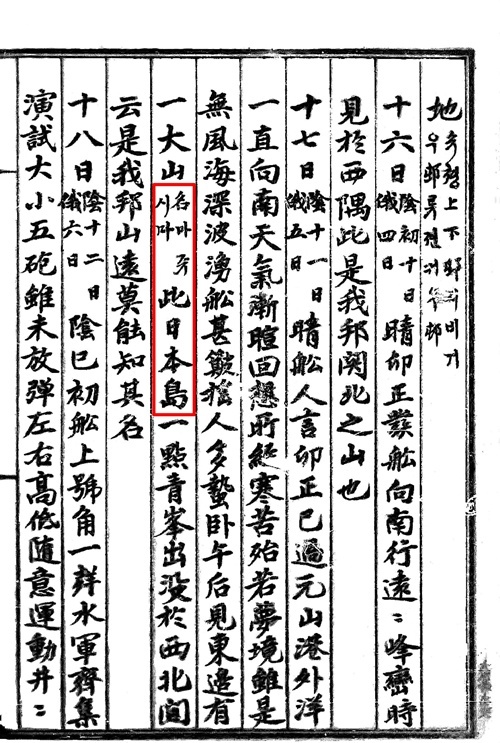 地 上下
十六日陰初十日俄四日晴卯正發船向南行遠〻峰巒時
見於西隅此是我邦關北之山也
十七日陰十一日俄五日晴船人言卯正已過元山港外洋
一直向南天氣漸暄回想所經寒苦殆若夢境雖是
無風海深波湧船甚簸搖人多蟄卧午后見東邊有
一大山名마쥬시마此日本島一點青峯出没於西北間
云是我邦山遠莫能知其名
十八日陰十二日俄六日陰巳初船上號角一群水軍齊集
演試大小五砲雖未放彈左右高低隨意運動井〻